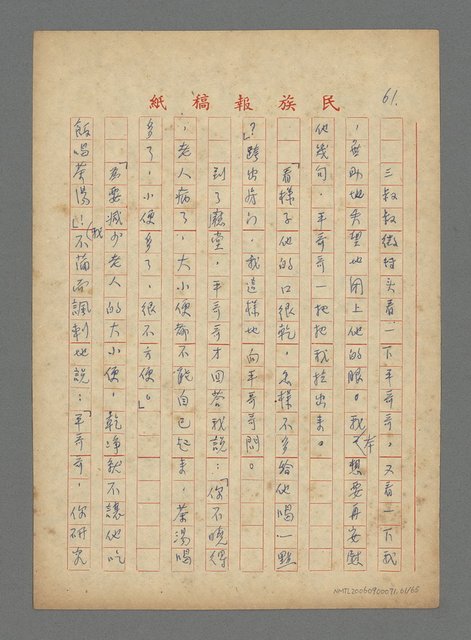 民族報稿紙
61.
三叔叔微微转头看一下平哥哥,又看一下我
,無助地失望地闭上他的眼。我(本想要再安慰
他幾句,平哥哥一把把我拉出来。
「看樣子他的口很乾,怎樣不多給他喝一點
?」踏出房门,我這樣地向平哥哥問。
到了廳堂,平哥哥才回答我說:「你不曉得
,老人病了,大小便都不能自己起来,茶湯喝
多了,小便多了,很不方便。」
「為要減少老人的大小便,乾淨就不讓他吃
飯喝茶湯!」(我不滿而諷刺地說:「平哥哥,你研究
NMTL20060900091.61/65